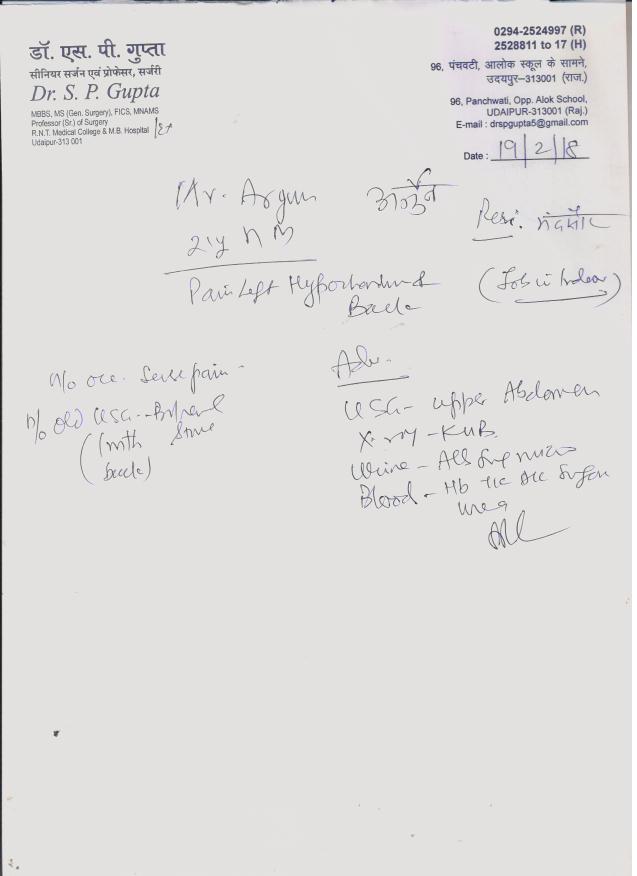 डॉ. एस. पी. गुप्ता
सीनियर सर्जन एवं प्रोफेसर, सर्जरी
Dr. S. P. Gupta
MBBS, MS (Gen. Surgery), FICS, MNAMS
Professor (Sr.) of Surgery
R.N.T. Medical College & M.B. Hospital
Udaipur-313 001
0294-2524997 (R)
2528811 to 17 (H)
96, पंचवटी, आलोक स्कूल के सामने,
उदयपुर–313001 (राज.)
96, Panchwati, Opp. Alok School,
UDAIPUR-313001 (Raj.)
E-mail : drspgupta5@gmail.com
Date : 19/2/18
Mr. Arjun अर्जुन
Resi. मंदसौर
(Job in Indore)
Pain Left Hypochondrium &
Back
H/o occ. Severe pain -
H/o Old USG - Renal
Stone
(
back)
Adv.
USG - upper Abdomen
X-ray - KUB
Urine - Alb Sug micro
Blood - Hb TLC DLC Sugar
Urea